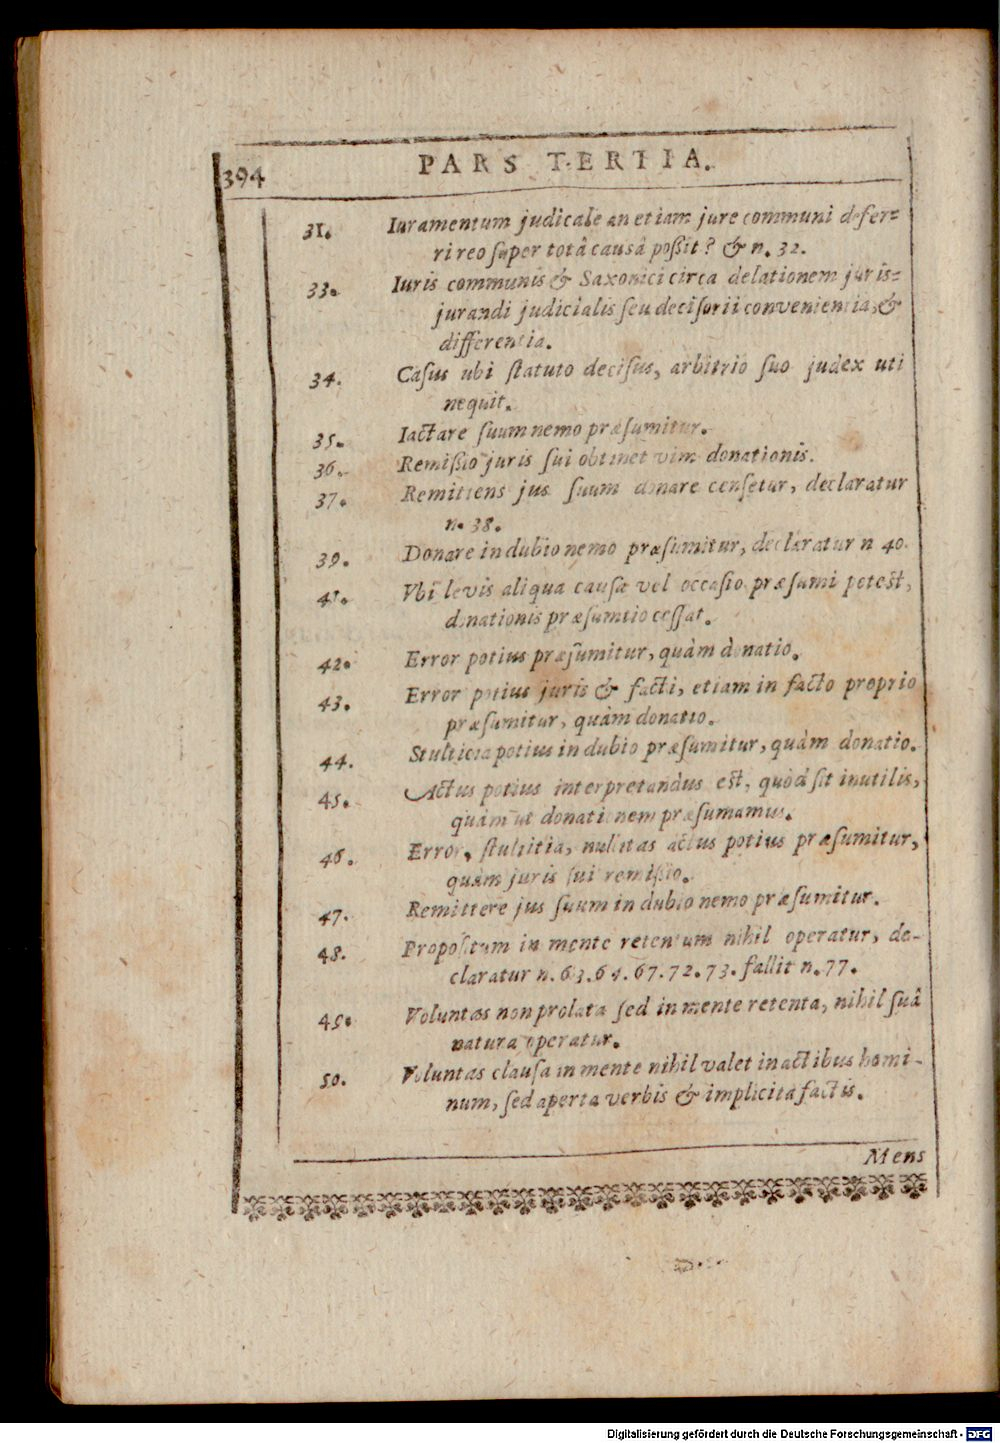 394 PARS TERTIA.
31. Iuramentum judicale an etiam jure communi defer-
ri reo super totâ causâ poßit? & n. 32.
33. Iuris communis & Saxonici circa delationem juris-
jurandi judicialis seu decisorii convenientia, &
differentia.
34. Casus ubi statuto decisus, arbitrio suo judex uti
nequit.
35. Iactare suum nemo præsumitur.
36. Remißio juris sui obtinet vim donationis.
37. Remittens jus suum donare censetur, declaratur
n. 38.
39. Donare in dubio nemo præsumitur, declaratur n 40.
41. Vbi levis aliqua causa vel occasio præsumi potest,
donationis præsumtio cessat.
42. Error potius præsumitur, quàm donatio.
43. Error potius juris & facti, etiam in facto proprio
præsumitur, quàm donatio.
44. Stulticia potius in dubio præsumitur, quàm donatio.
45. Actus potius interpretandus est, quòd sit inutilis,
quàm ut donationem præsumamus.
46. Error, stultitia, nullitas actus potius præsumitur,
quàm juris sui remißio.
47. Remittere jus suum in dubio nemo præsumitur.
48. Propositum in mente retentum nihil operatur, de-
claratur n. 63. 64. 67. 72. 73. fallit n. 77.
45. Voluntas non prolata sed in mente retenta, nihil suâ
natura operatur.
50. Voluntas clausa in mente nihil valet in actibus homi-
num, sed aperta verbis & implicita factis.
Mens
Digitalisierung gefördert durch die Deutsche Forschungsgemeinschaft - DFG